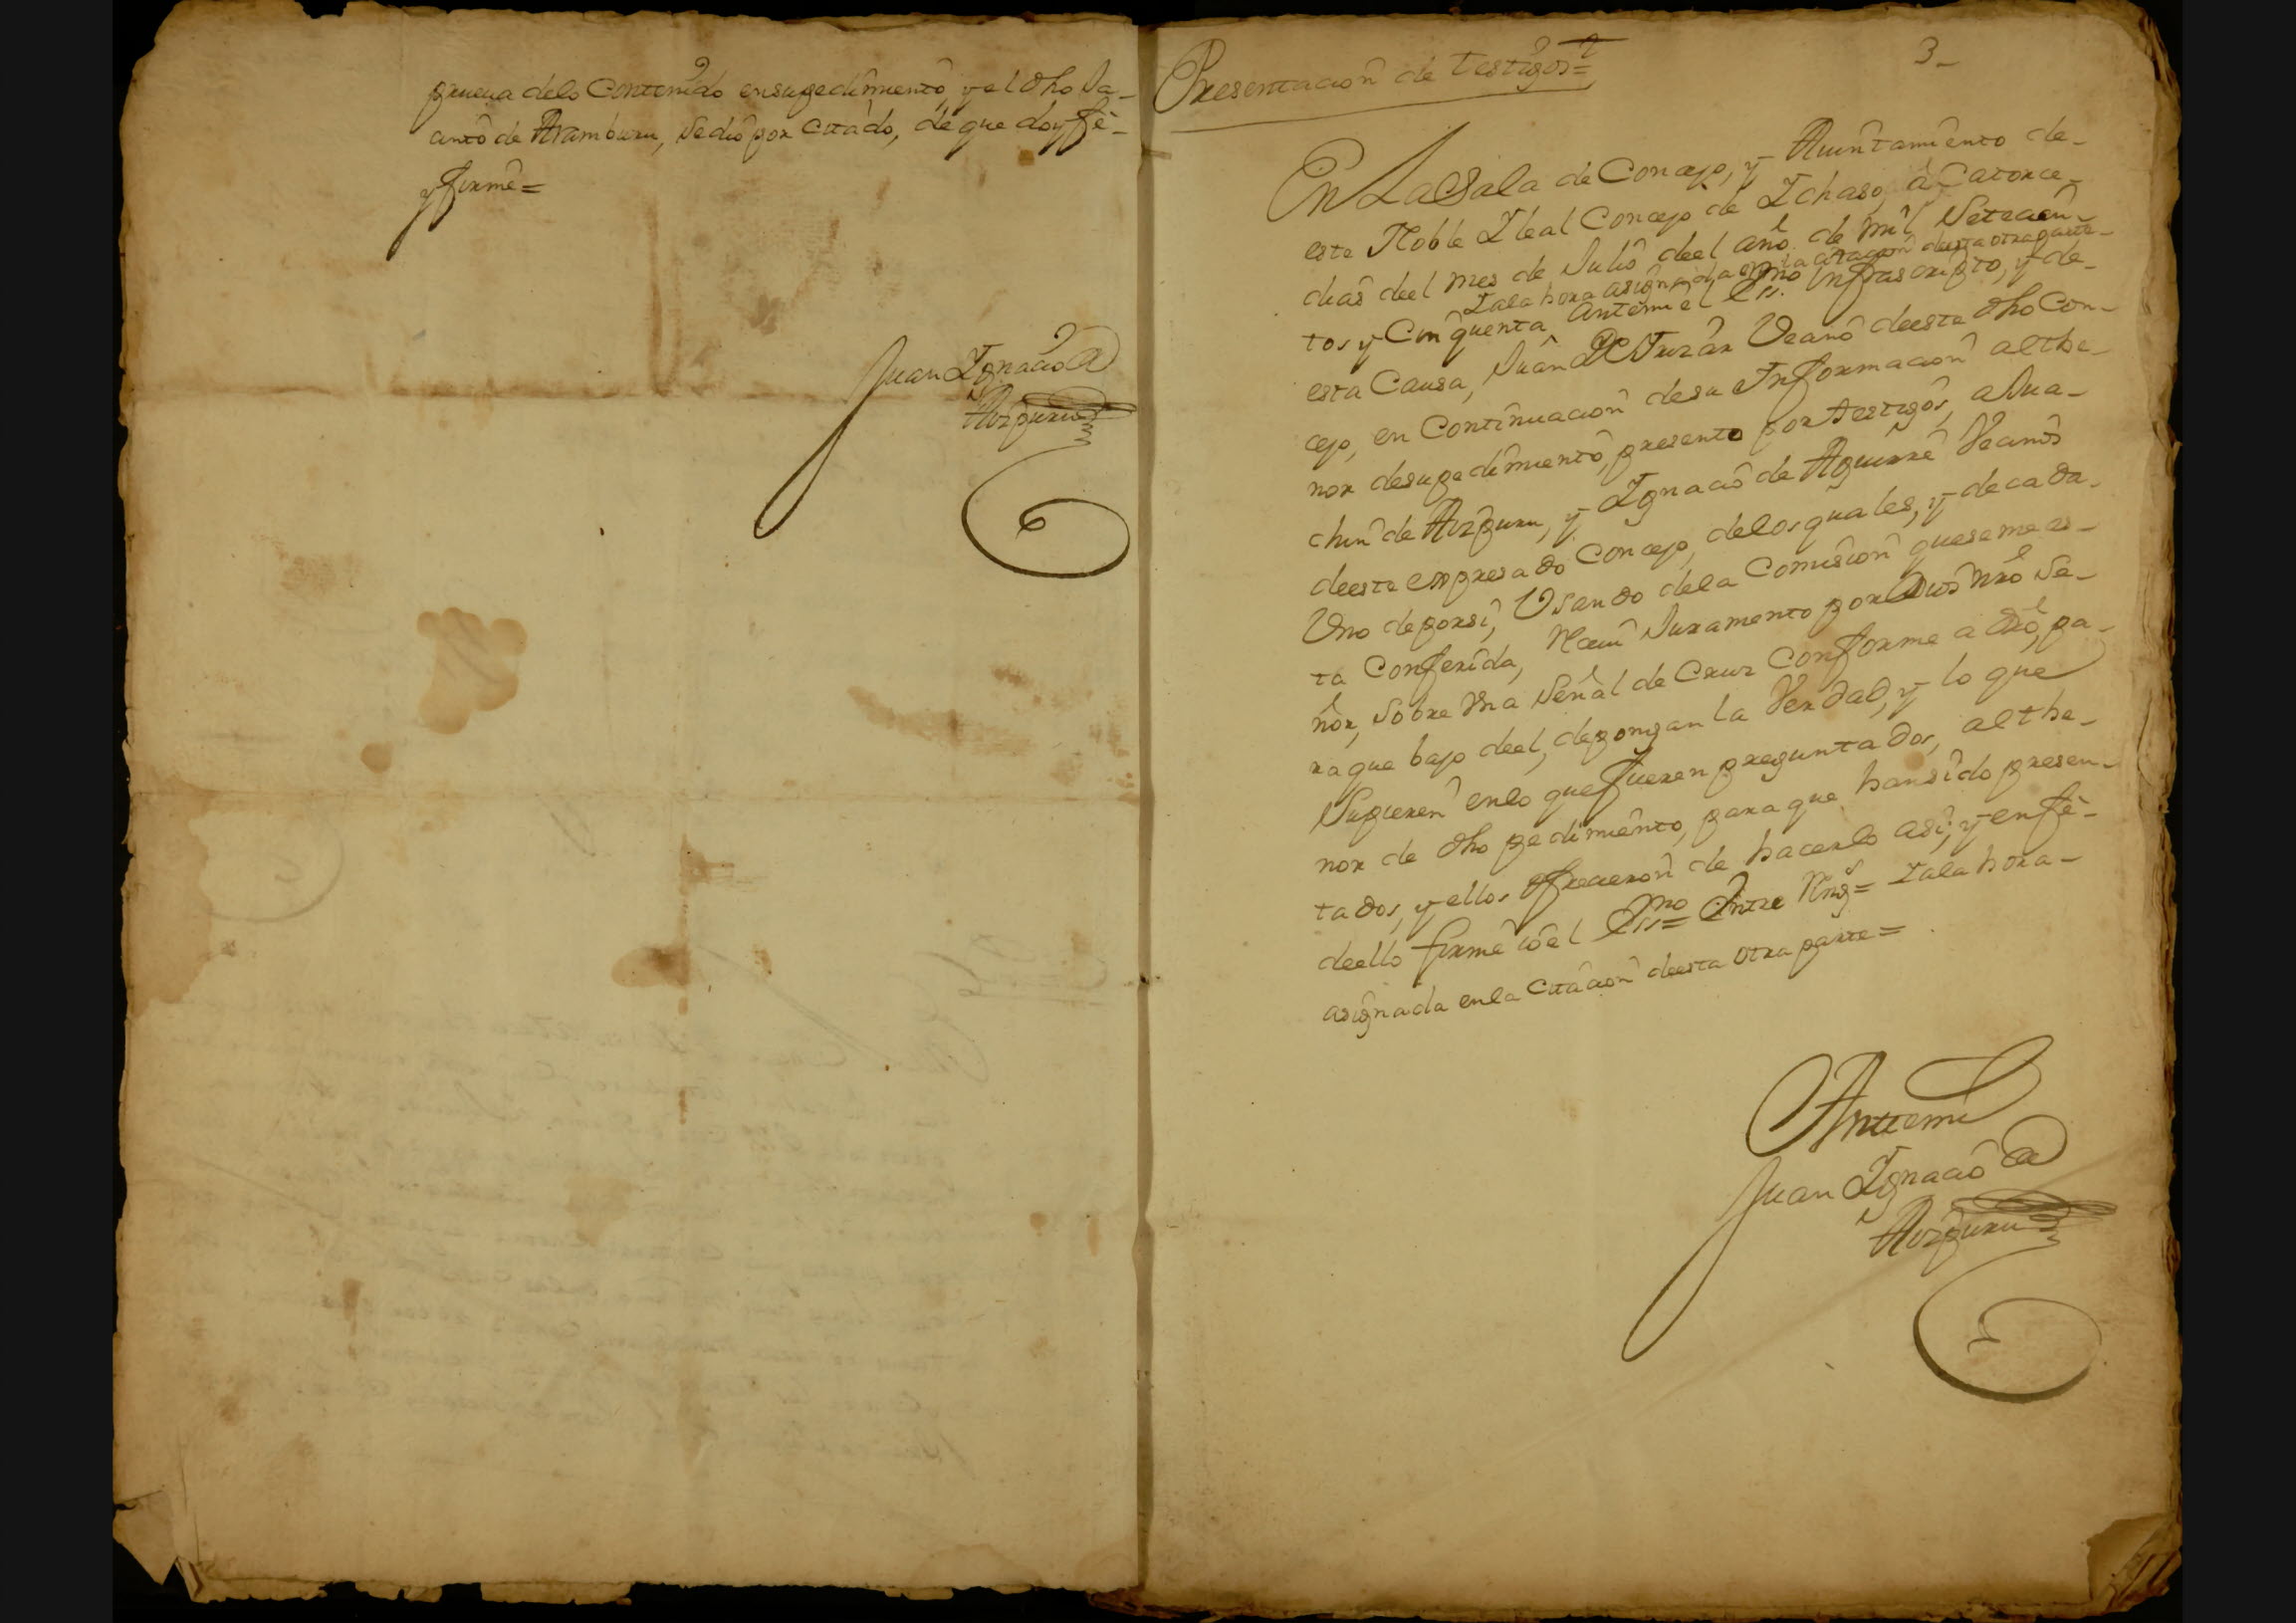 prueua delo Contenido ensupedimiento, y el dho Ja-
cinto de Aramburu, sedio por citado, de que doy fè-
y firmè=
Juan Ignacio de
Aizpuru
Presentacion de testigos=
3-
En La Sala de Concejo, y Aiuntamiento de-
este Noble Y leal Concejo de Ichaso, à Catorce-
dias deel mes de Julio deel año de mil Setecien-
tos y Cinquenta, Ante mi el Essno Infrascripto, y de-
Y ala hora asignada en la citacion deesta otra parte-
esta Causa, Juan de Iruzar Vecino deeste dho Con-
cejo, en Continuacion desu Informacion al the-
nor desupedimiento, presento por testigos, a Jua-
chin de Aizpuru, y Ignacio de Aguirre Vecinos
deeste expresado Concejo, delos quales, y decada-
Uno deporsi, Usando dela Comision queseme es-
ta Conferida, Reciui Juramento por Dios nrô Se-
ñor, Sobre Una Señal de Cruz Conforme a drô, pa-
raque bajo deel, depongan la Verdad, y lo que
Supieren enlo quefueren preguntados, al the-
nor de dho pedimiento, paraque hansido presen-
tados, y ellos ofrecieron de hacerlo asi, y enfè-
deello firmè ioel Essno= Entre Rengs= Y ala hora-
asignada enla citacion deesta otra parte=
Antemi
Juan Ignacio de
Aizpuru